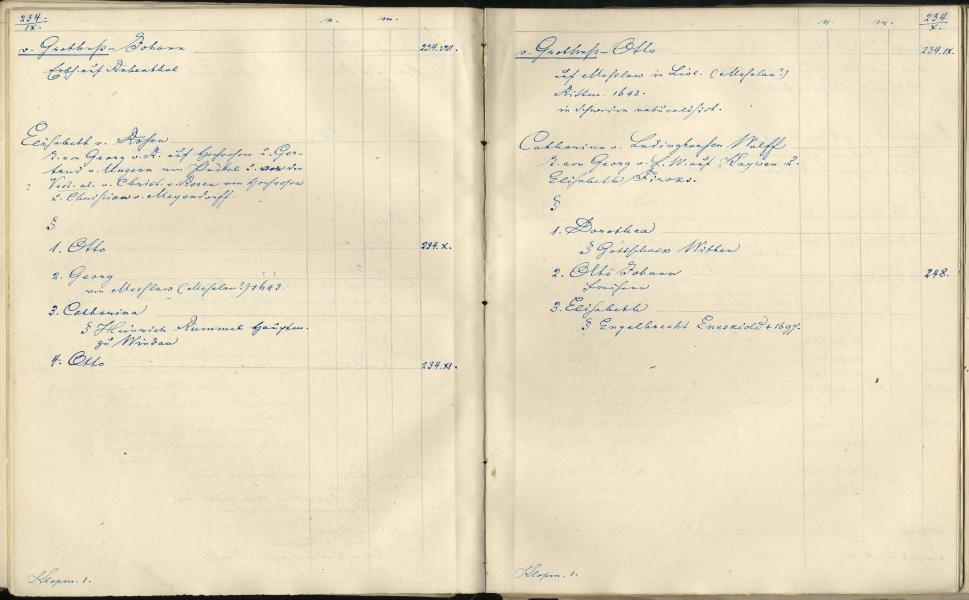 234.
IX.
n. m.
v. Grotthuß - Johann 234.VIII.
Erbh. auf Ruhenthal
Elisabeth v. Rosen
T. von Georg v. R. auf Hochrosen u. Ger-
trud v. Ungern von Pürkel u. der
? Christ. v. Rosen von Hochrosen
u. Christina v. Meyendorff.
§
1. Otto 234.X.
2. Georg
von Meshlaw (Meselau?) 1643.
3. Catharina
§ Heinrich Rummel Hauptm.
zu Windau
4. Otto 234.XI.
Klopm. 1.
n. m. 234
X.
v. Grotthuß - Otto 234.IX.
auf Meshlaw in Livl. (Meselau?)
Rittm. 1642.
in Schweden naturalisirt.
Catharina v. Ludinghausen Wolff
T. von Georg v. L. W. auf Kaywen u.
Elisabeth Fircks.
§
1. Dorothea
§ Gottschalk Witten
2. Otto Johann 248.
Freiherr
3. Elisabeth
§ Engelbrecht Eneskiold † 1697.
Klopm. 1.